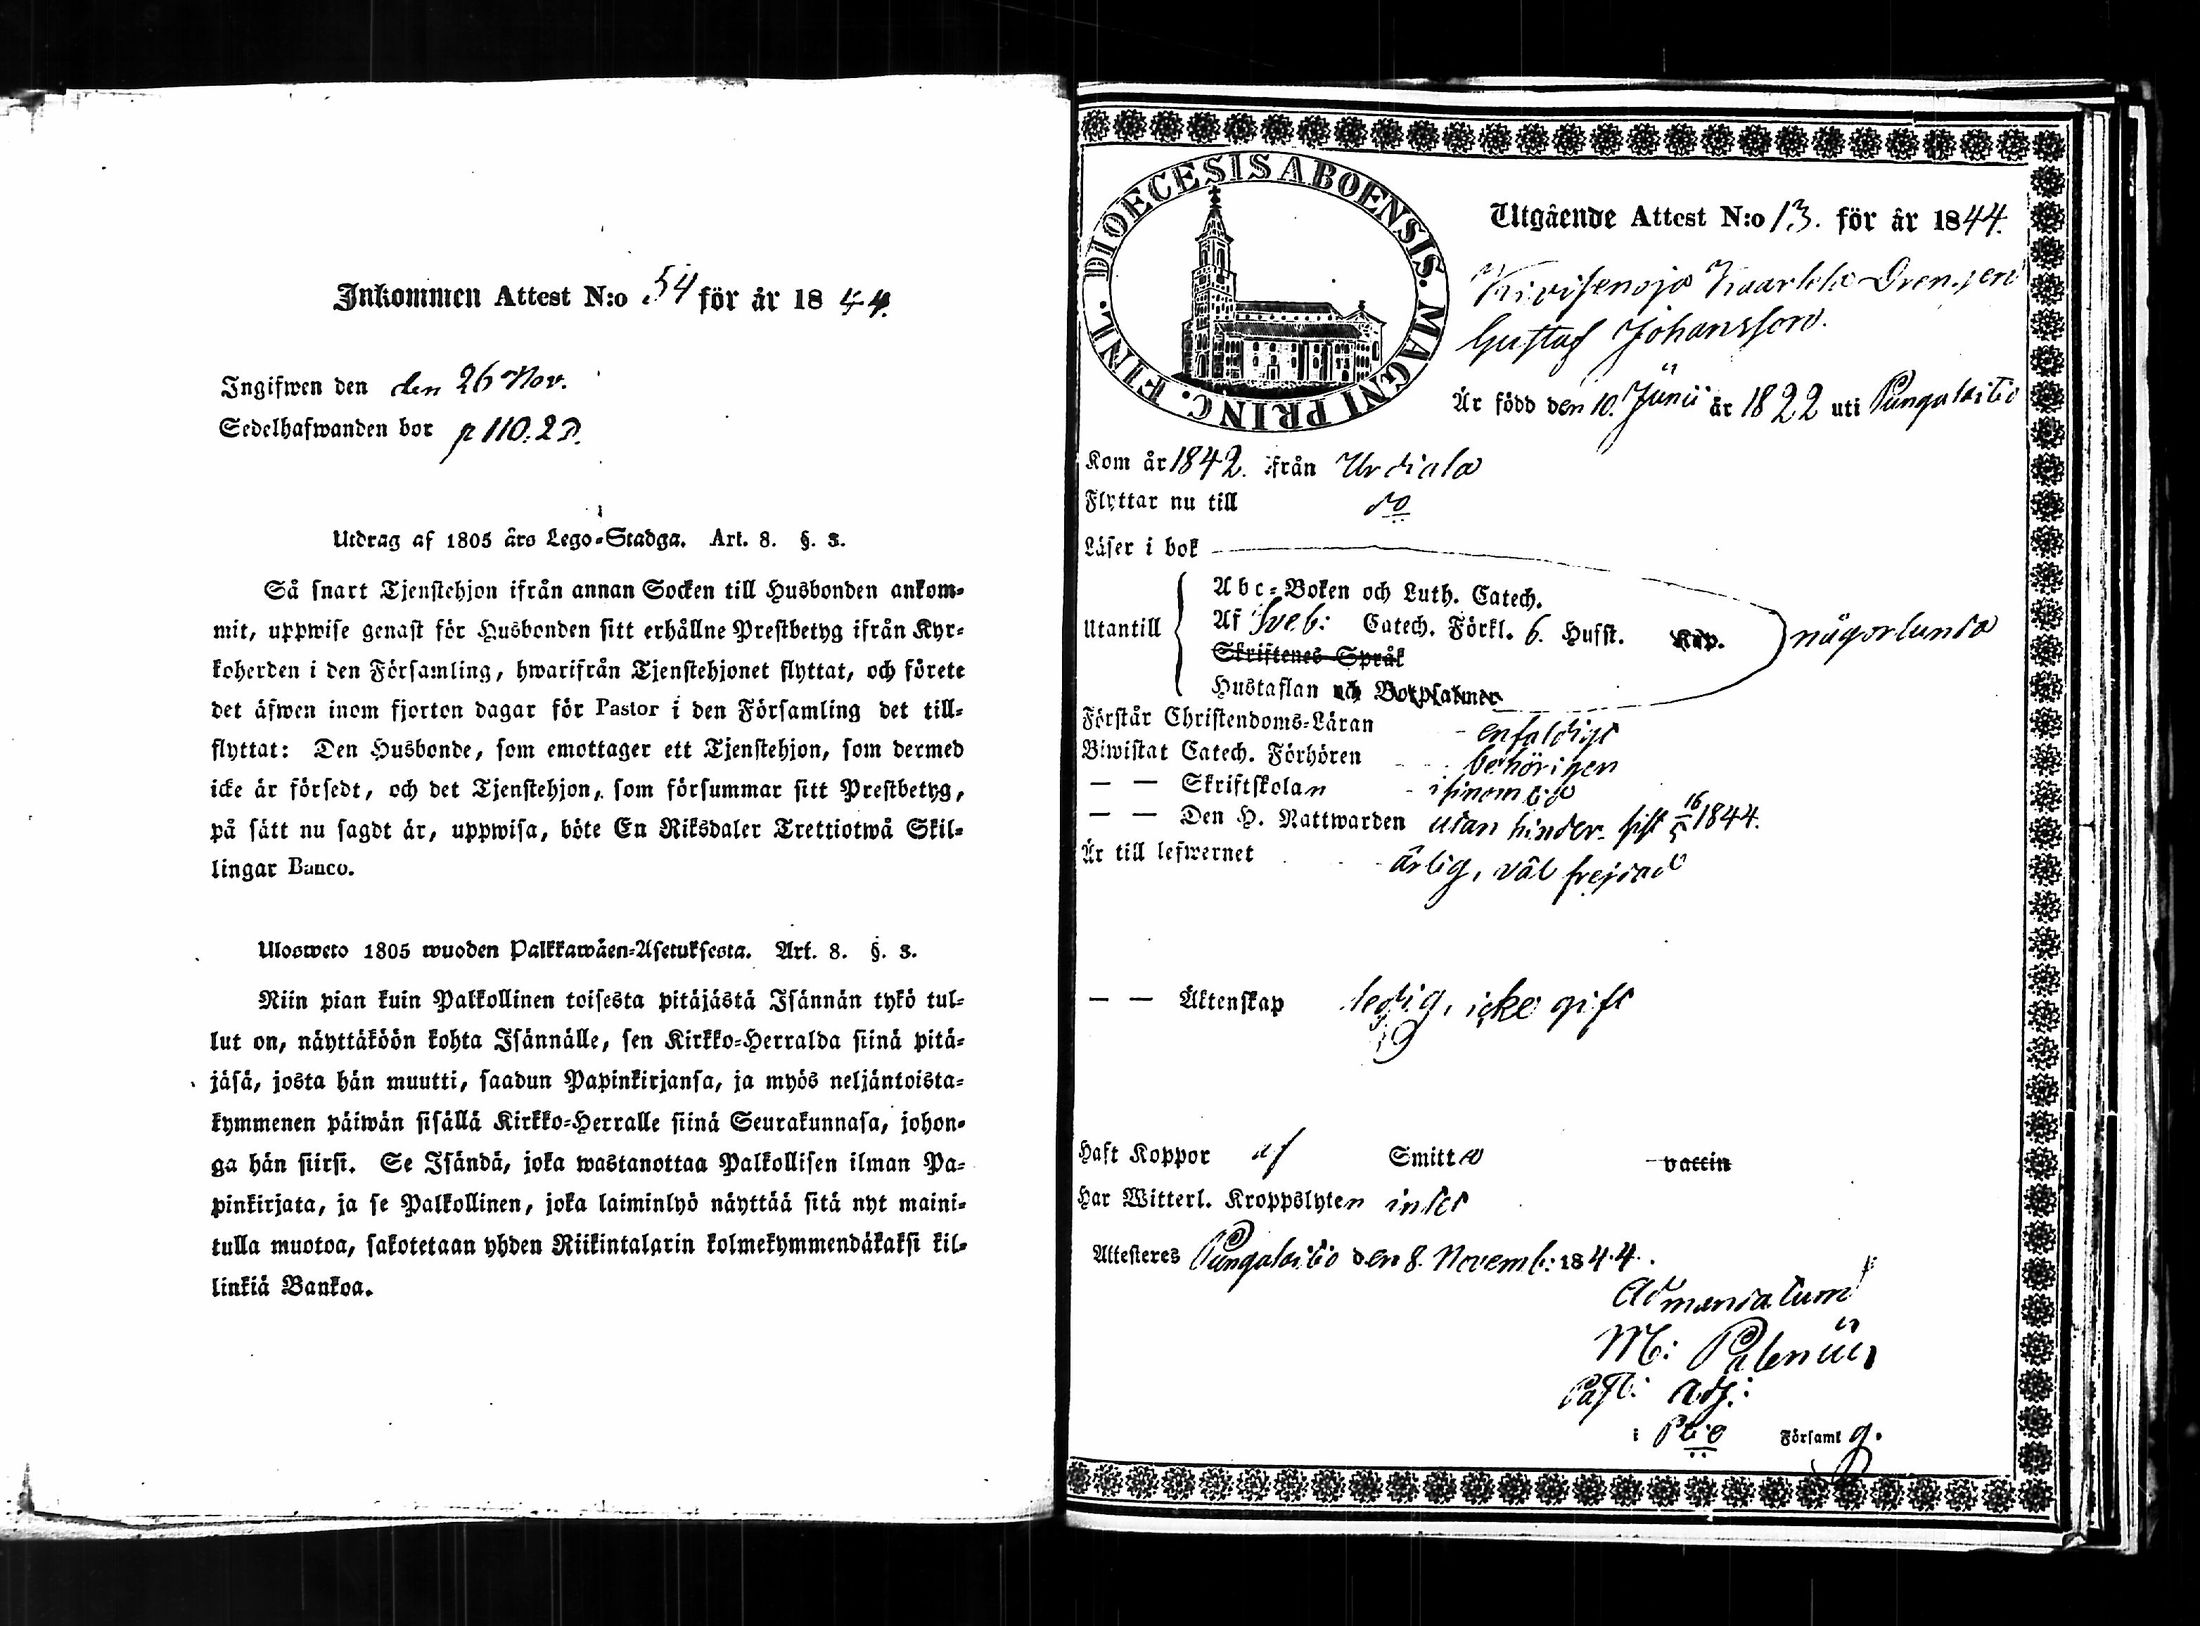 Inkommen Attest N:o 54 för år 1844.
Ingifwen den den 26 Nov.
Sedelhafwanden bor p 110. 2 D.
Utdrag af 1805 års Lego-Stadga. Art. 8. §. 3.
Så snart Tjenstehjon ifrån annan Socken till Husbonden ankom-
mit, uppwise genast för Husbonden sitt erhållne Prestbetyg ifrån Kyr-
koherden i den Församling, hwarifrån Tjenstehjonet flyttat, och förete
det äfwen inom fjorton dagar för Pastor i den Församling det till-
flyttat: Den Husbonde, som emottager ett Tjenstehjon, som dermed
icke är försedt, och det Tjenstehjon, som försummar sitt Prestbetyg,
på sätt nu sagdt är, uppwisa, böte En Riksdaler Trettiotwå Skil-
lingar Banco.
Ulosweto 1805 wuoden Palkkawäen-Asetuksesta. Art. 8. §. 3.
Niin pian kuin Palkollinen toisesta pitäjästä Isännän tykö tul-
lut on, näyttäköön kohta Isännälle, sen Kirkko-Herralda siinä pitä-
jäsä, josta hän muutti, saadun Papinkirjansa, ja myös neljäntoista-
kymmenen päiwän sisällä Kirkko-Herralle siinä Seurakunnasa, johon-
ga hän siirsi. Se Isändä, joka wastanottaa Palkollisen ilman Pa-
pinkirjata, ja se Palkollinen, joka laiminlyö näyttää sitä nyt maini-
tulla muotoa, sakotetaan yhden Riikintalarin kolmekymmendäkaksi kil-
linkiä Bankoa.
DIOECESIS ABOENSIS. MAGNI PRINC. FINL.
Utgående Attest N:o 13. för år 1844.
Drengen
Gustaf Johansson.
Är född den 10. Junii år 1822 uti Pungalaitio
Kom år 1842. ifrån Urdiala
Flyttar nu till do
Läser i bok
Utantill
Abc-Boken och Luth. Catech.
Af Sveb: Catech. Förkl. 6. Hufst. Kap. någorlunda
Skriftenes Språk
Hustaflan och Botpsalmer
Förstår Christendoms-Läran enfaldigt
Biwistat Catech. Förhören behörigen
— — Skriftskolan
— — Den H. Nattwarden utan hinder sist 16/5 1844.
Är till lefwernet ärlig, väl frejdad
— — Äktenskap ledig, icke gift
Haft Koppor af Smitta vaccin
Har Witterl. Kroppslyten intet
Attesteres Pungalaitio den 8. Novemb: 1844.
Ad mandatum
M: Palenius
Past: adj:
i P:tio Församl g.